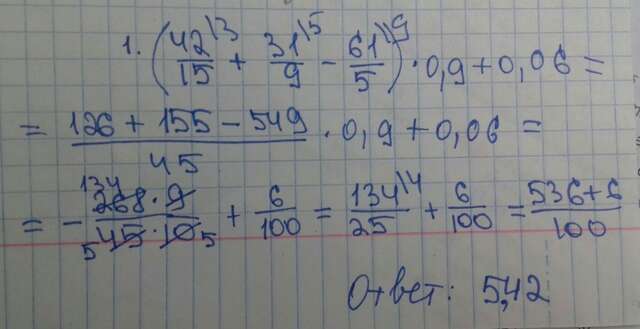 1. (42/15 \3 + 31/9 \5 - 61/5 \9) · 0,9 + 0,06 =
= (126 + 155 - 549)/45 · 0,9 + 0,06 =
= - (134 268 · 9)/(5 45 · 10 5) + 6/100 = 134/25 \4 + 6/100 = (536+6)/100
Ответ: 5,42